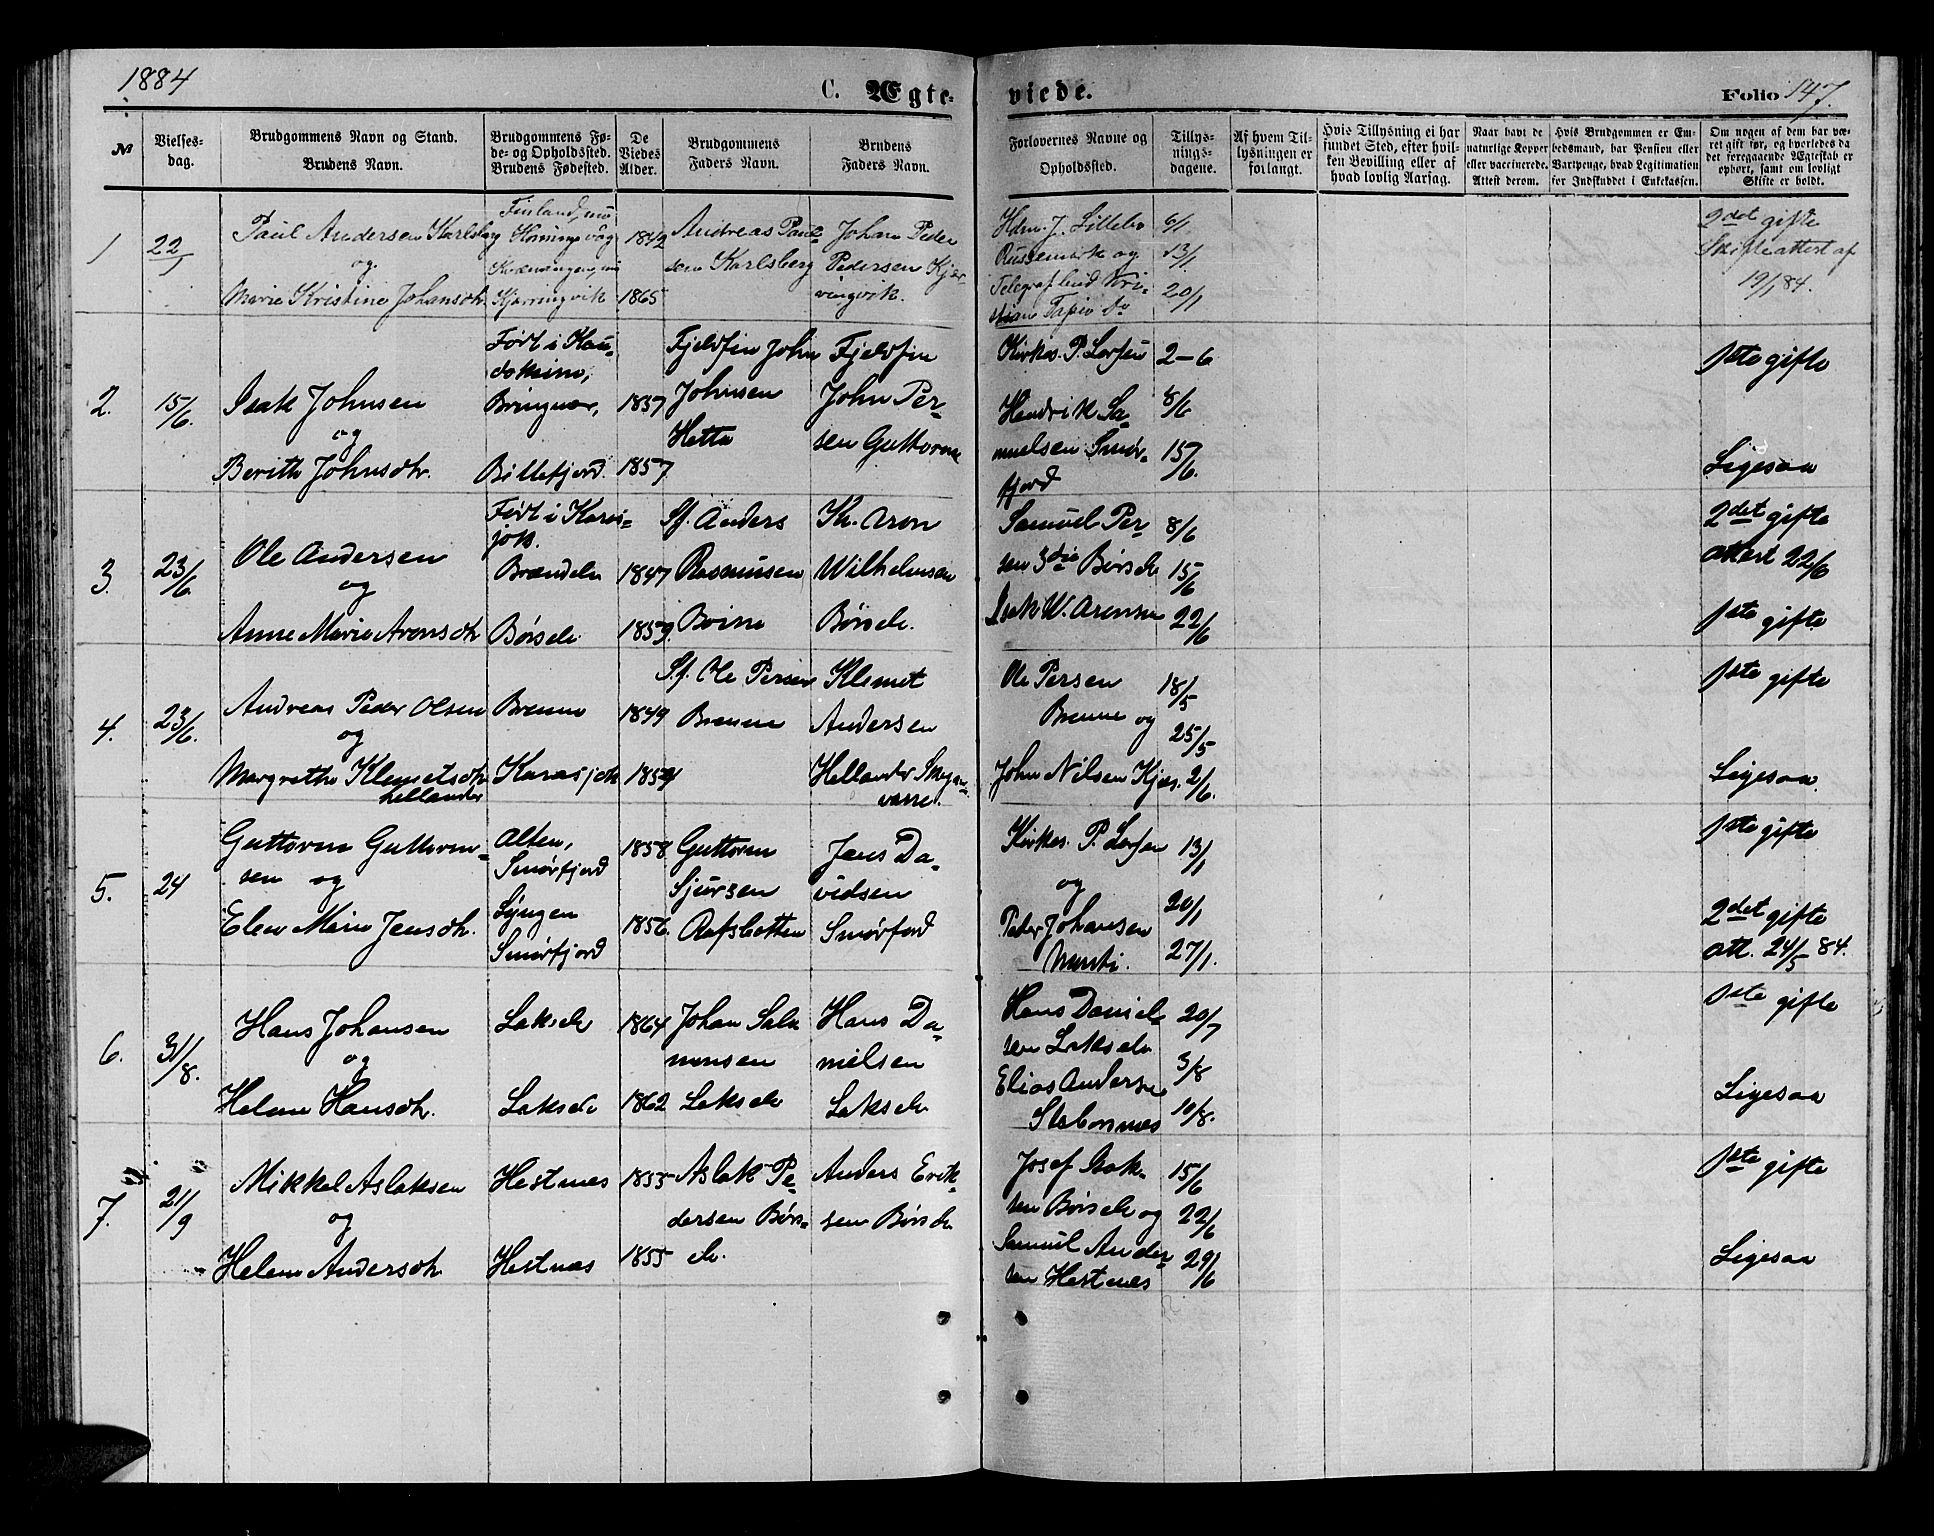 1884
C. Ægte-
viede.
Folio 147.
№
Vielses-
dag.
Brudgommens Navn og Stand.
Brudens Navn.
Brudgommens Fø-
de- og Opholdssted.
Brudens Fødested.
De
Viedes
Alder.
Brudgommens
Faders Navn.
Brudens
Faders Navn.
Forlovernes Navne og
Opholdssted.
Tillys-
nings-
dagene.
Af hvem Til-
lysningen er
forlangt.
Hvis Tillysning ei har
fundet Sted, efter hvil-
ken Bevilling eller af
hvad lovlig Aarsag.
Naar havt de
naturlige Kopper
eller vaccinerede.
Attest derom.
Hvis Brudgommen er Em-
bedsmand, har Pension eller
Vartpenge, hvad Legitimation
for Indskuddet i Enkekassen.
Om nogen af dem har væ-
ret gift før, og hvorledes da
det foregaaende Ægteskab er
ophørt, samt om lovligt
Skifte er holdt.
1
22/1
Paul Andersen Karlsberg
og
Marie Kristine Johansdtr.
Finland, nu
Honningsvåg
Kvænangen, nu
Kjærringvik
1842
1865
Andreas Paul-
sen Karlsberg
Johan Peder
Pedersen Kjær-
ringvik.
Hdm. J. Lillebo
Russemark og
Telegrafbud Kri-
stian Tapio do
6/1
13/1
20/1
2det gifte
Skifteattest af
19/1 84.
2.
15/6.
Isak Johnsen
og
Berith Johnsdtr.
Født i Kau-
tokeino,
Bringnær,
Billefjord.
1837
1857
Fjeldfin John
Johnsen
Hetta
Fjeldfin
John Per-
sen Guttorm
Kirkes. P. Larsen
Hendrik Sa-
muelsen Smør-
fjord
2-6
8/6
15/6.
1ste gifte
Ligesaa
3.
23/6.
Ole Andersen
og
Anne Marie Aronsdtr
Født i Karas-
jok.
Brændelv
Børselv
1847
1859.
Sf. Anders
Rasmusen
Boine
Kv. Aron
Wilhelmsen
Børselv.
Samuel Per-
sen 3die Børselv
Isak W. Aronsen
8/6
15/6
22/6
2det gifte
attest 22/6
1ste gifte
4.
23/6.
Andreas Peder Olsen
og
Margrethe Klemetsdtr
Hellander
Brenne
Karasjok
1849
1854
Sf. Ole Persen
Brenne
Klemet
Andersen
Hellander Skogan-
varre.
Ole Persen
Brenne og
John Nilsen Kjæs.
18/5
25/5
2/6.
1ste gifte
Ligesaa
5.
24
Guttorm Guttorm-
sen og
Elen Marie Jensdtr.
Alten,
Smørfjord
Lyngen
Smørfjord
1858
1856.
Guttorm
Sjursen
Rafsbotten
Jens Da-
vidsen
Smørfjord
Kirkes. P. Larsen
og
Peder Johansen
13/1
20/1
27/1.
1ste gifte
2det gifte
att. 24/5 84.
6.
31/8.
Hans Johansen
og
Helene Hansdtr.
Lakselv
Lakselv
1864
1862
Johan Salo-
monsen
Lakselv
Hans Da-
nielsen
Lakselv
Hans Daniel-
sen Lakselv
Elias Andersen
Stabbursnæs
20/7
3/8
10/8.
1ste gifte
Ligesaa
7.
21/9
Mikkel Aslaksen
og
Helene Andersdtr
Hestnæs
Hestnæs
1855
1855
Aslak Pe-
dersen Børs-
elv.
Anders Erik-
sen Børselv
Josef Isak-
sen Børselv og
Samuel Ander-
sen Hestnæs
15/6
22/6
29/6
1ste gifte
Ligesaa